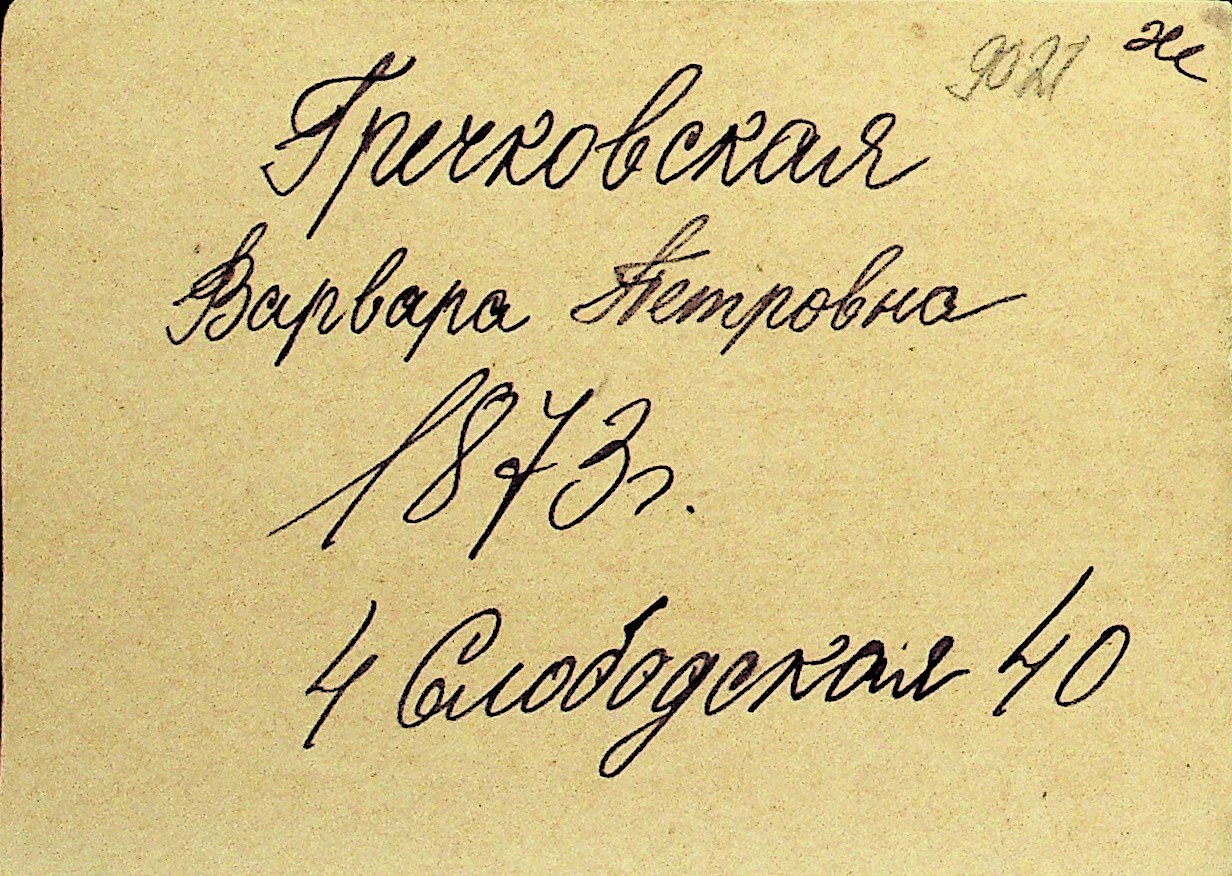 9021 ж
Гречковская
Варвара Петровна
1873 г.
4 Слободская 40